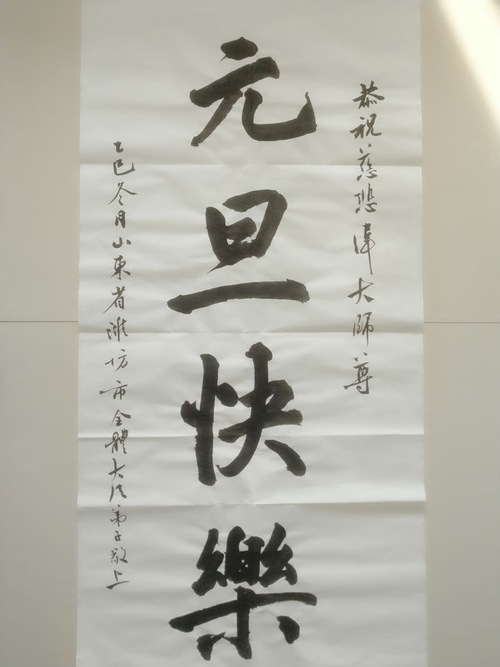 恭祝慈悲偉大師尊
元旦快樂
乙巳冬月山東省濰坊市全體大法弟子敬上